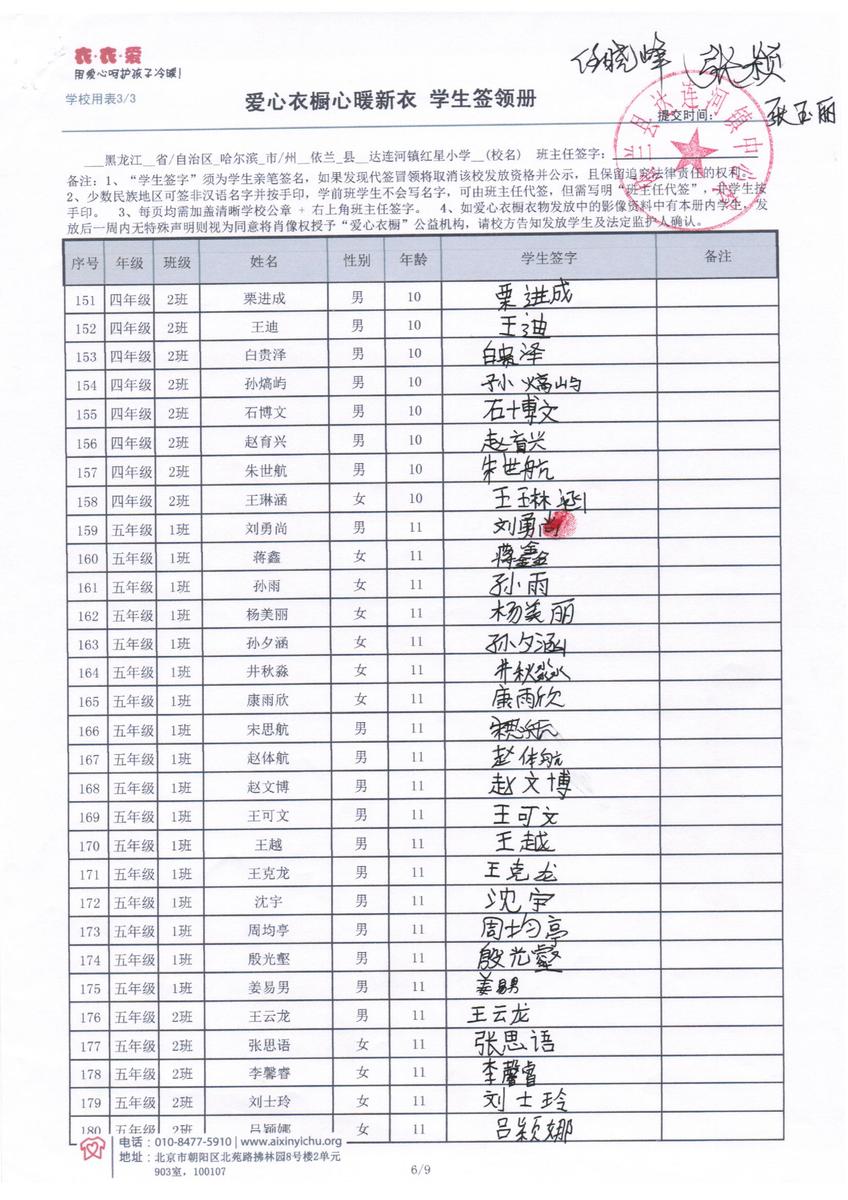 衣·衣·爱
用爱心呵护孩子冷暖!
任晓峰 张颖
学校用表3/3
爱心衣橱心暖新衣 学生签领册
提交时间:
张玉丽
__黑龙江__省/自治区_哈尔滨_市/州__依兰_县__达连河镇红星小学__(校名) 班主任签字:
备注:1、“学生签字”须为学生亲笔签名,如果发现代签冒领将取消该校发放资格并公示,且保留追究法律责任的权利。
2、少数民族地区可签非汉语名字并按手印,学前班学生不会写名字,可由班主任代签,但需写明“班主任代签”,并学生按
手印。 3、每页均需加盖清晰学校公章 + 右上角班主任签字。 4、如爱心衣橱衣物发放中的影像资料中有本册内学生,发
放后一周内无特殊声明则视为同意将肖像权授予“爱心衣橱”公益机构,请校方告知发放学生及法定监护人确认。
序号 年级 班级 姓名 性别 年龄 学生签字 备注
151 四年级 2班 栗进成 男 10 栗进成
152 四年级 2班 王迪 男 10 王迪
153 四年级 2班 白贵泽 男 10 白贵泽
154 四年级 2班 孙熇屿 男 10 孙熇屿
155 四年级 2班 石博文 男 10 石博文
156 四年级 2班 赵育兴 男 10 赵育兴
157 四年级 2班 朱世航 男 10 朱世航
158 四年级 2班 王琳涵 女 10 王琳涵
159 五年级 1班 刘勇尚 男 11 刘勇尚
160 五年级 1班 蒋鑫 女 11 蒋鑫
161 五年级 1班 孙雨 女 11 孙雨
162 五年级 1班 杨美丽 女 11 杨美丽
163 五年级 1班 孙夕涵 女 11 孙夕涵
164 五年级 1班 井秋淼 女 11 井秋淼
165 五年级 1班 康雨欣 女 11 康雨欣
166 五年级 1班 宋思航 男 11 宋思航
167 五年级 1班 赵体航 男 11 赵体航
168 五年级 1班 赵文博 男 11 赵文博
169 五年级 1班 王可文 男 11 王可文
170 五年级 1班 王越 男 11 王越
171 五年级 1班 王克龙 男 11 王克龙
172 五年级 1班 沈宇 男 11 沈宇
173 五年级 1班 周均亭 男 11 周均亭
174 五年级 1班 殷光壑 男 11 殷光壑
175 五年级 1班 姜易男 男 11 姜易男
176 五年级 2班 王云龙 男 11 王云龙
177 五年级 2班 张思语 女 11 张思语
178 五年级 2班 李馨睿 女 11 李馨睿
179 五年级 2班 刘士玲 女 11 刘士玲
180 五年级 2班 吕颖娜 女 11 吕颖娜
电话:010-8477-5910 | www.aixinyichu.org
地址:北京市朝阳区北苑路拂林园8号楼2单元
903室,100107
6/9